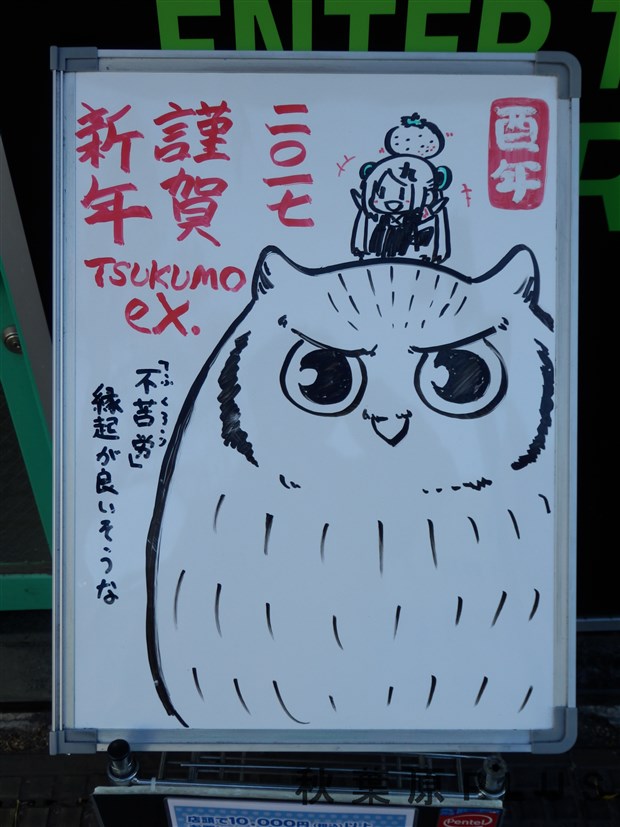 ENTER T
R
酉年
二〇一七
謹賀
新年
TSUKUMO
eX.
九
「不苦労」
ふくろう
縁起が良いそうな
秋葉原PLUS
店頭で10,000円(税込)以上
Pentel